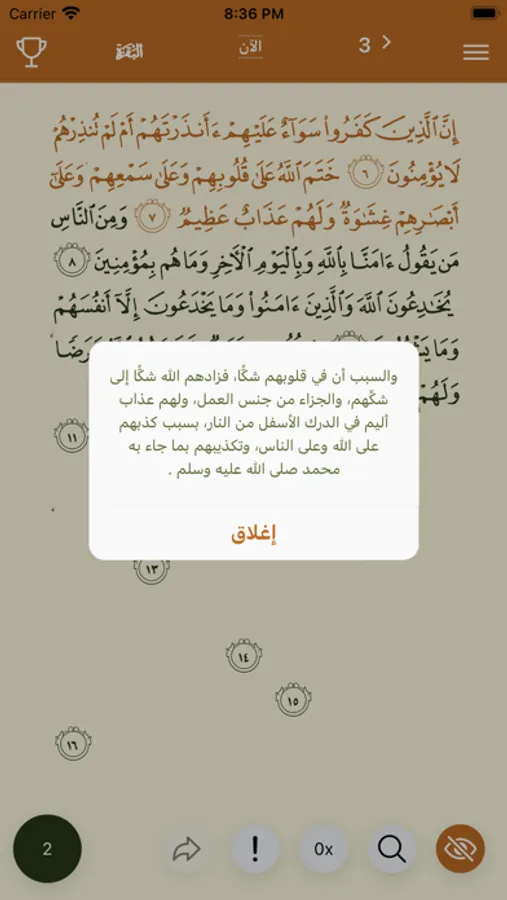 Carrier 8:36 PM
البقرة الآن 3
إِنَّ ٱلَّذِينَ كَفَرُوا۟ سَوَآءٌ عَلَيْهِمْ ءَأَنذَرْتَهُمْ أَمْ لَمْ تُنذِرْهُمْ
لَا يُؤْمِنُونَ ٦ خَتَمَ ٱللَّهُ عَلَىٰ قُلُوبِهِمْ وَعَلَىٰ سَمْعِهِمْ وَعَلَىٰٓ
أَبْصَٰرِهِمْ غِشَٰوَةٌ وَلَهُمْ عَذَابٌ عَظِيمٌ ٧ وَمِنَ ٱلنَّاسِ
مَن يَقُولُ ءَامَنَّا بِٱللَّهِ وَبِٱلْيَوْمِ ٱلْءَاخِرِ وَمَا هُم بِمُؤْمِنِينَ ٨
يُخَٰدِعُونَ ٱللَّهَ وَٱلَّذِينَ ءَامَنُوا۟ وَمَا يَخْدَعُونَ إِلَّآ أَنفُسَهُمْ
وَمَا
وَلَهُمْ
والسبب أن في قلوبهم شكًّا، فزادهم الله شكًّا إلى
شكِّهم، والجزاء من جنس العمل، ولهم عذاب
أليم في الدرك الأسفل من النار، بسبب كذبهم
على الله وعلى الناس، وتكذيبهم بما جاء به
محمد صلى الله عليه وسلم .
١١
إغلاق
١٣
١٤
١٥
١٦
2 ! 0x